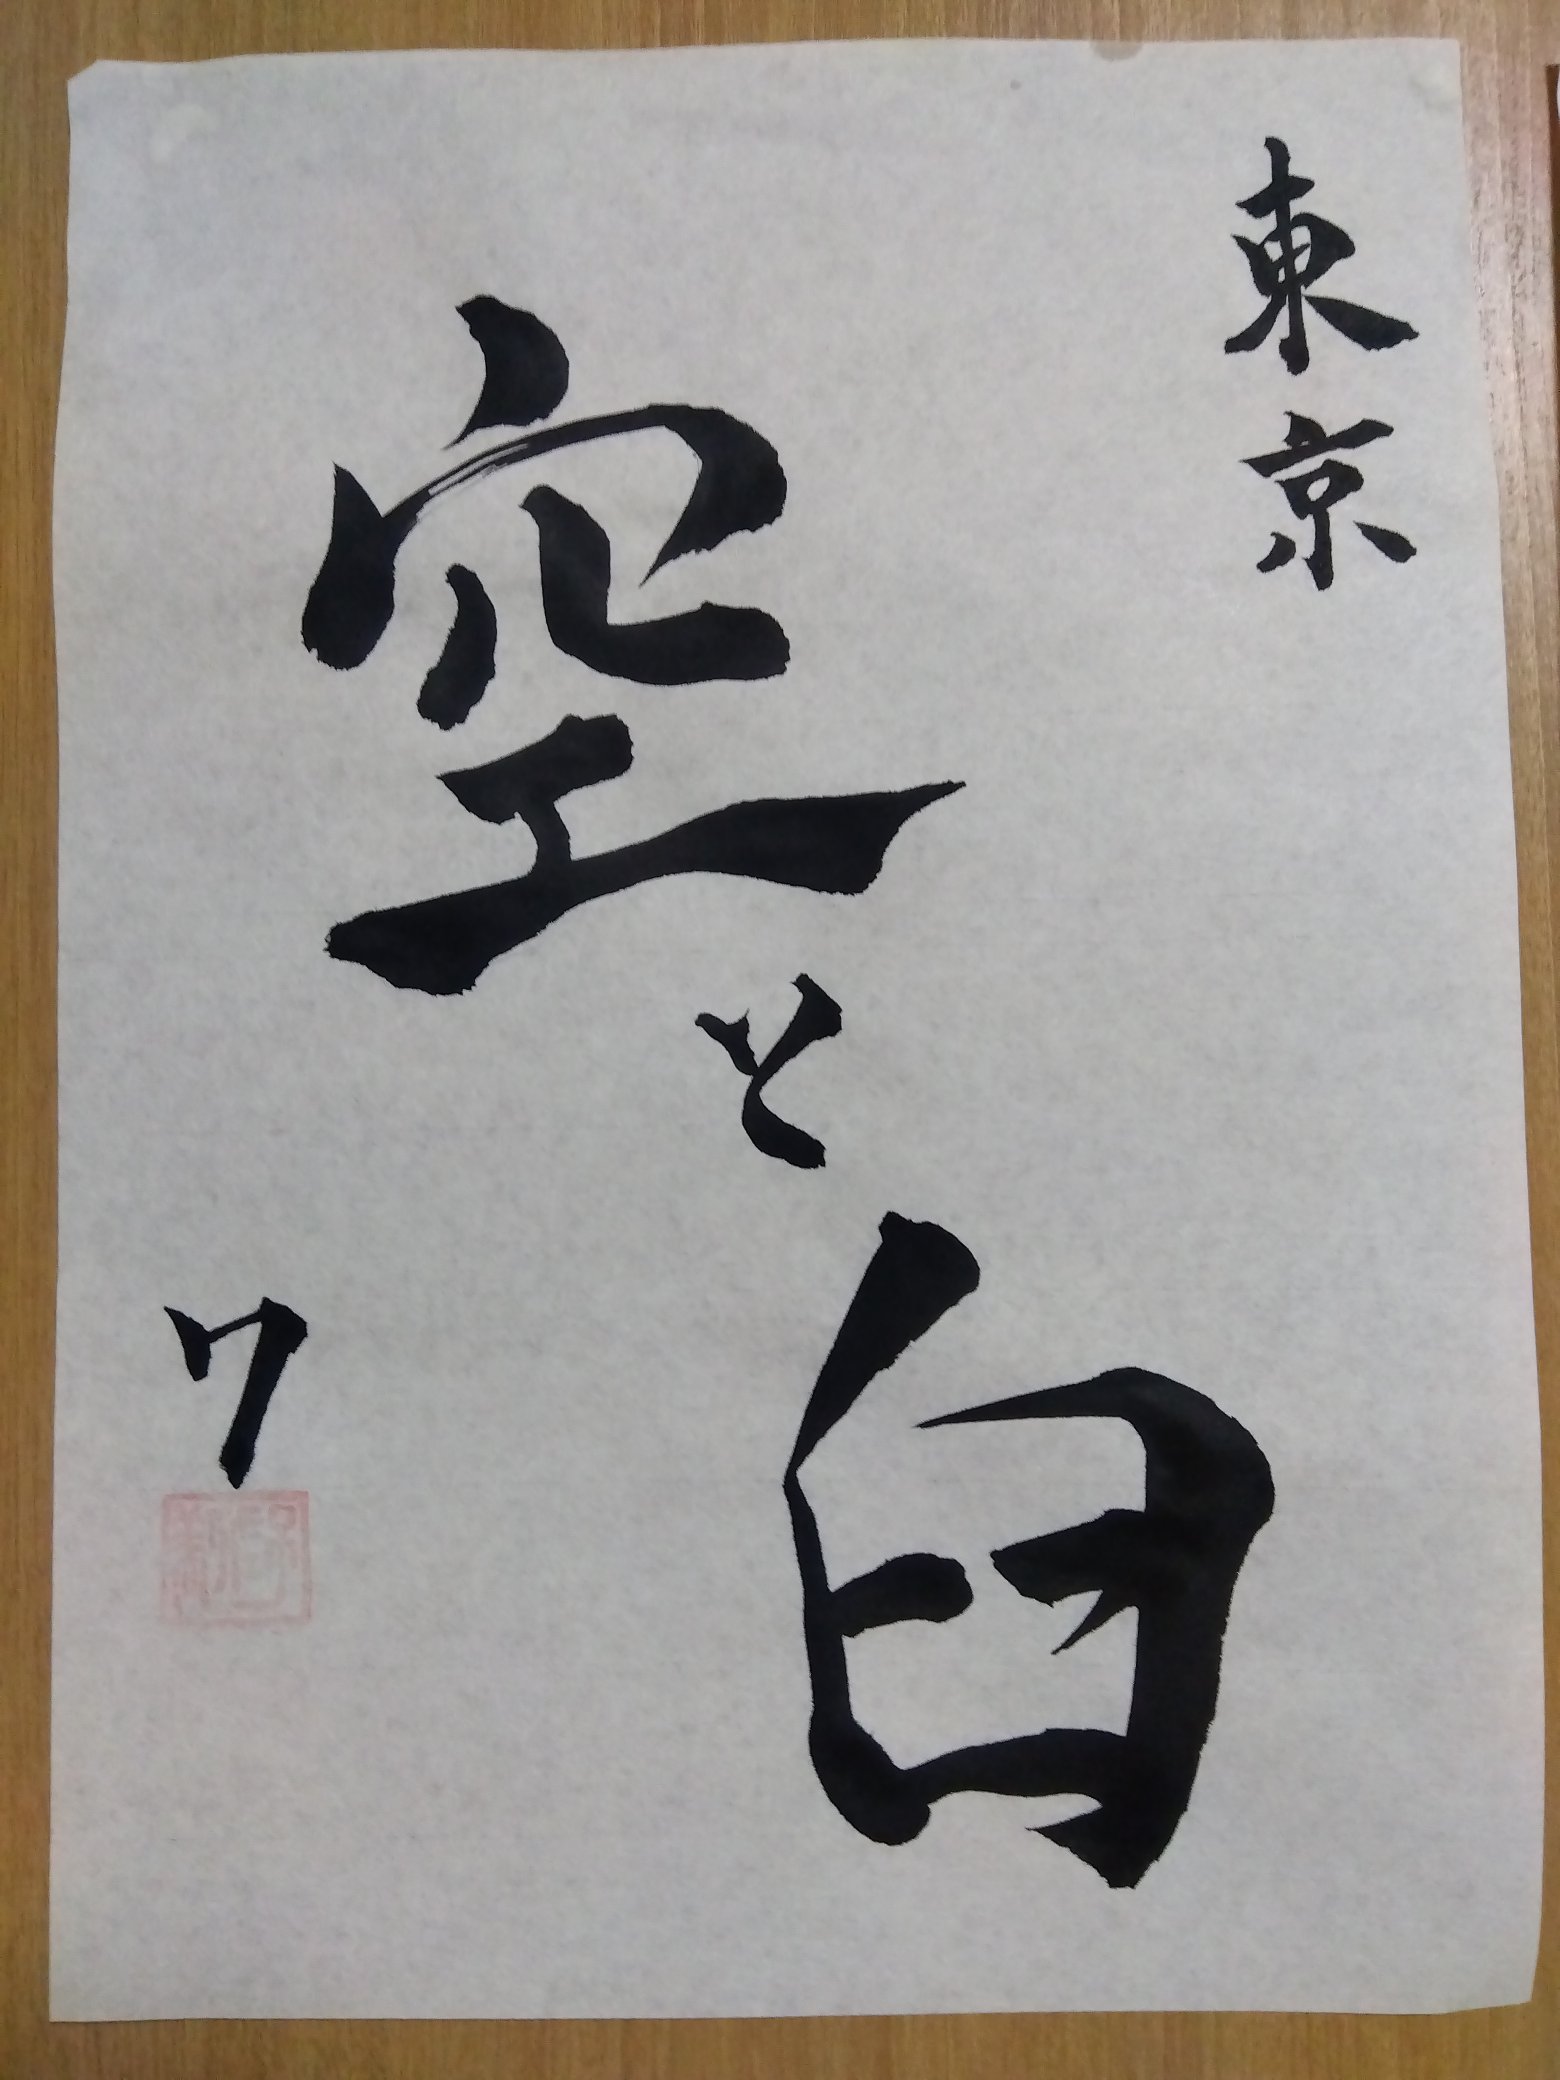 東京
空と白
ワ